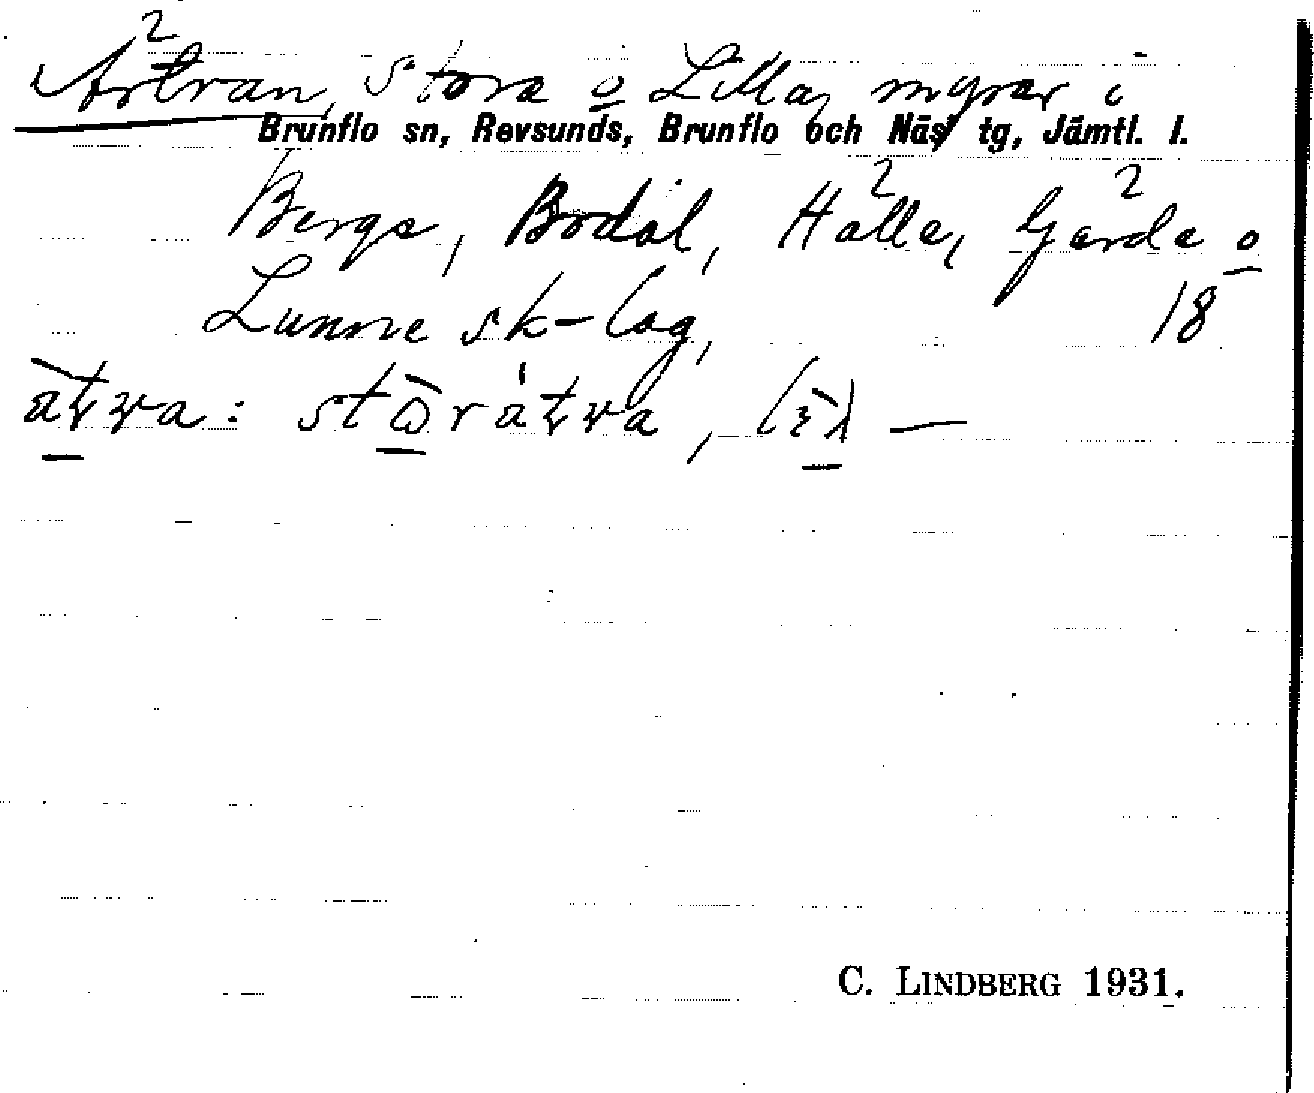 Årtran, Stora o Lilla, myrar i
Brunflo sn, Revsunds, Brunflo och Näs tg, Jämtl. l.
Berge, Bodal, Hälle, Gärde o
Lunne sk-lag, 18
C. LINDBERG 1931.